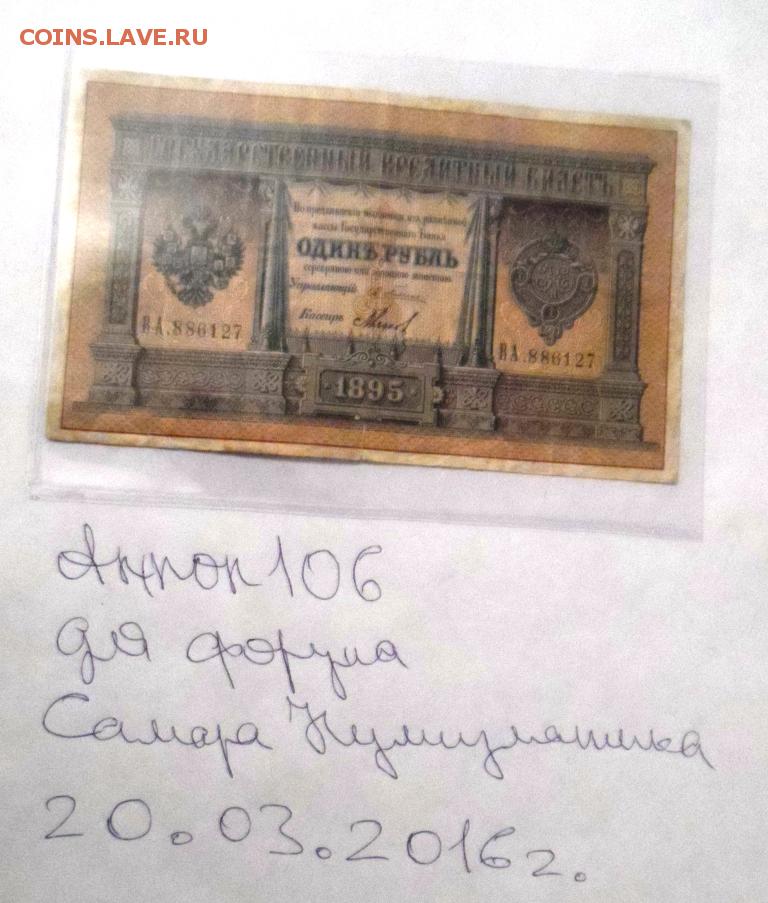 COINS.LAVE.RU
ГОСУДАРСТВЕННЫЙ КРЕДИТНЫЙ БИЛЕТЪ
кассы Государственнаго Банка
ОДИНЪ РУБЛЬ
Управляющій
Кассиръ
ВА.886127
ВА.886127
1895
106
для форума
Самара Нумизматика
20.03.2016г.